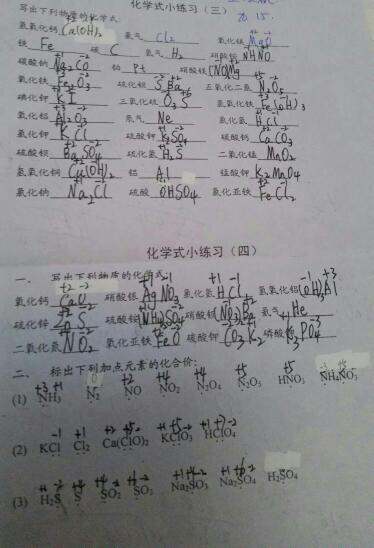 化学式小练习（三）
写出下列物质的化学式
氢氧化钙 Ca(OH)₂ 氯气 Cl₂ 氧化镁 MgO
铁 Fe 碳 C 氢气 H₂ 硝酸铵 NHNO
碳酸钠 Na₂CO 铂 Pt 硝酸镁 (NO)Mg
氧化铁 Fe₂O₃ 硫化钡 S Ba 三氧化二氮 N₂O₅
碘化钾 K I 三氧化硫 O₃S 氢氧化铁 Fe(OH)₃
氧化铝 Al₂O₃ 氖气 Ne 氯化氢 H Cl
氯化钾 K Cl 硫酸钾 K₂SO₄ 碳酸钙 Ca CO₃
硫酸钡 Ba₂SO₄ 硫化氢 H₂S 二氧化锰 MnO₂
氢氧化铜 Cu(OH)₂ 铝 Al 锰酸钾 K₂MnO₄
氯化钠 Na₂Cl 硫酸 OHSO₄ 氯化亚铁 Fe Cl₂
化学式小练习（四）
一、 写出下列物质的化学式
氧化钙 CaO 硝酸银 Ag NO₃ 氯化氢 H Cl 氢氧化铝 (OH)₃Al
硫化锌 S 硫酸铵 (NH₄)SO₄ 硝酸钡 (NO₃)Ba 氦气 He
二氧化氮 NO₂ 氧化亚铁 FeO 碳酸钾 CO₃K₂ 磷酸 PO₄
二、 标出下列加点元素的化合价：
(1) NH₃ N₂ NO NO₂ N₂O₄ N₂O₅ HNO₃ NH₄NO₃
(2) KCl Cl₂ Ca(ClO)₂ KClO₃ HClO₄
(3) H₂S S SO₂ SO₃ Na₂SO₃ Na₂SO₄ H₂SO₄